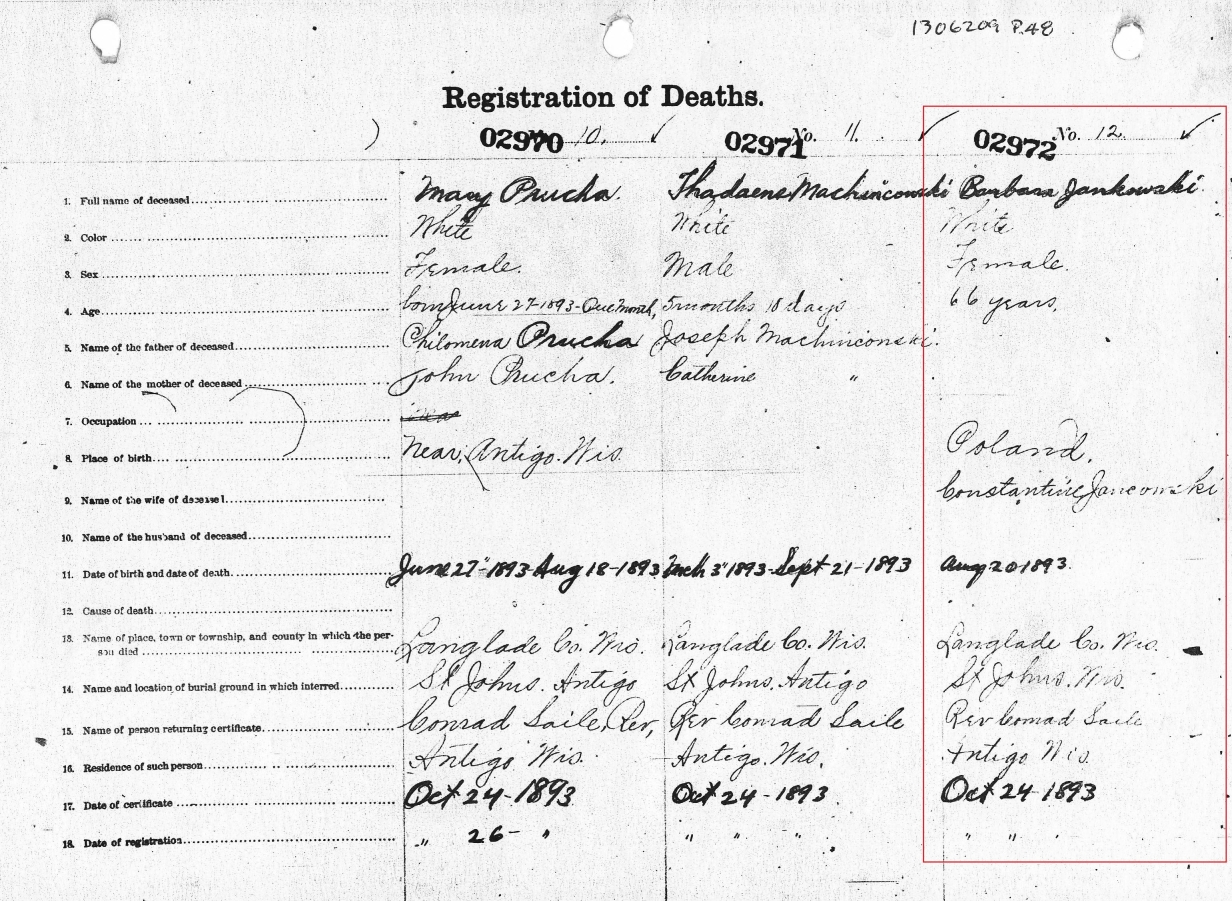 1306209 P.48
Registration of Deaths.
02970 10. 02971 No. 11. 02972 No. 12.
1. Full name of deceased Mary Prucha. Thadaens Machinconski Barbara Jankowski
2. Color White White White
3. Sex Female. Male Female.
4. Age born June 27-1893-One Month, 5 months 18 days 66 years.
5. Name of the father of deceased Philomena Prucha Joseph Machinconski.
6. Name of the mother of deceased John Prucha. Catherine "
7. Occupation
8. Place of birth Near, Antigo. Wis Poland.
9. Name of the wife of deceased Constantine Jancowski
10. Name of the husband of deceased
11. Date of birth and date of death June 27"-1893-Aug 18-1893 Mch 3"1893-Sept 21-1893 Aug 20 1893.
12. Cause of death
13. Name of place, town or township, and county in which the per-
son died Langlade Co. Wis. Langlade Co. Wis. Langlade Co. Wis.
14. Name and location of burial ground in which interred St Johns. Antigo St Johns. Antigo St Johns. Wis.
15. Name of person returning certificate Conrad Saile, Rev, Rev Conrad Saile Rev Conrad Saile
16. Residence of such person Antigo Wis. Antigo. Wis. Antigo Wis.
17. Date of certificate Oct 24-1893 Oct 24-1893 Oct 24-1893
18. Date of registration " 26- " " " " " " "